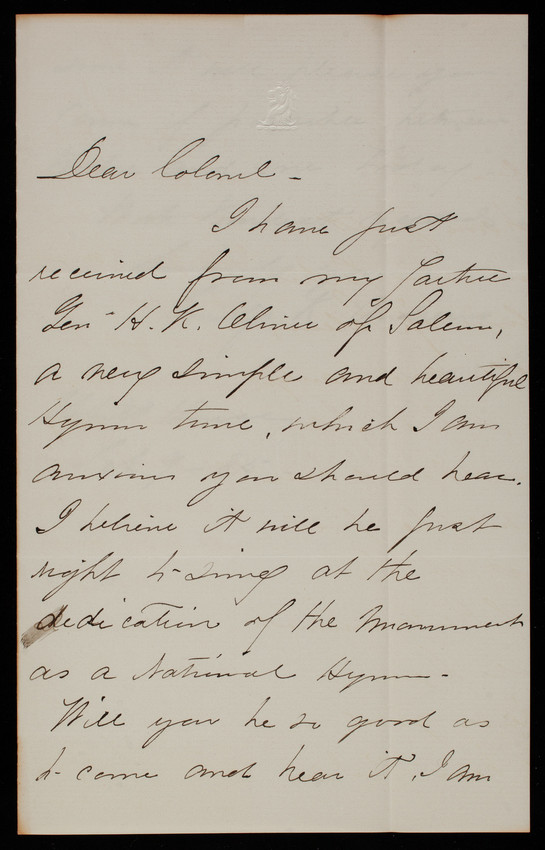 Dear Colonel -
I have just
received from my Father
Gen- H. K. Oliver of Salem,
a very simple and beautiful
Hymn tune, which I am
anxious you should hear.
I believe it will be just
right to sing at the
dedication of the Monument
as a National Hymn -
Will you be so good as
to come and hear it, I am